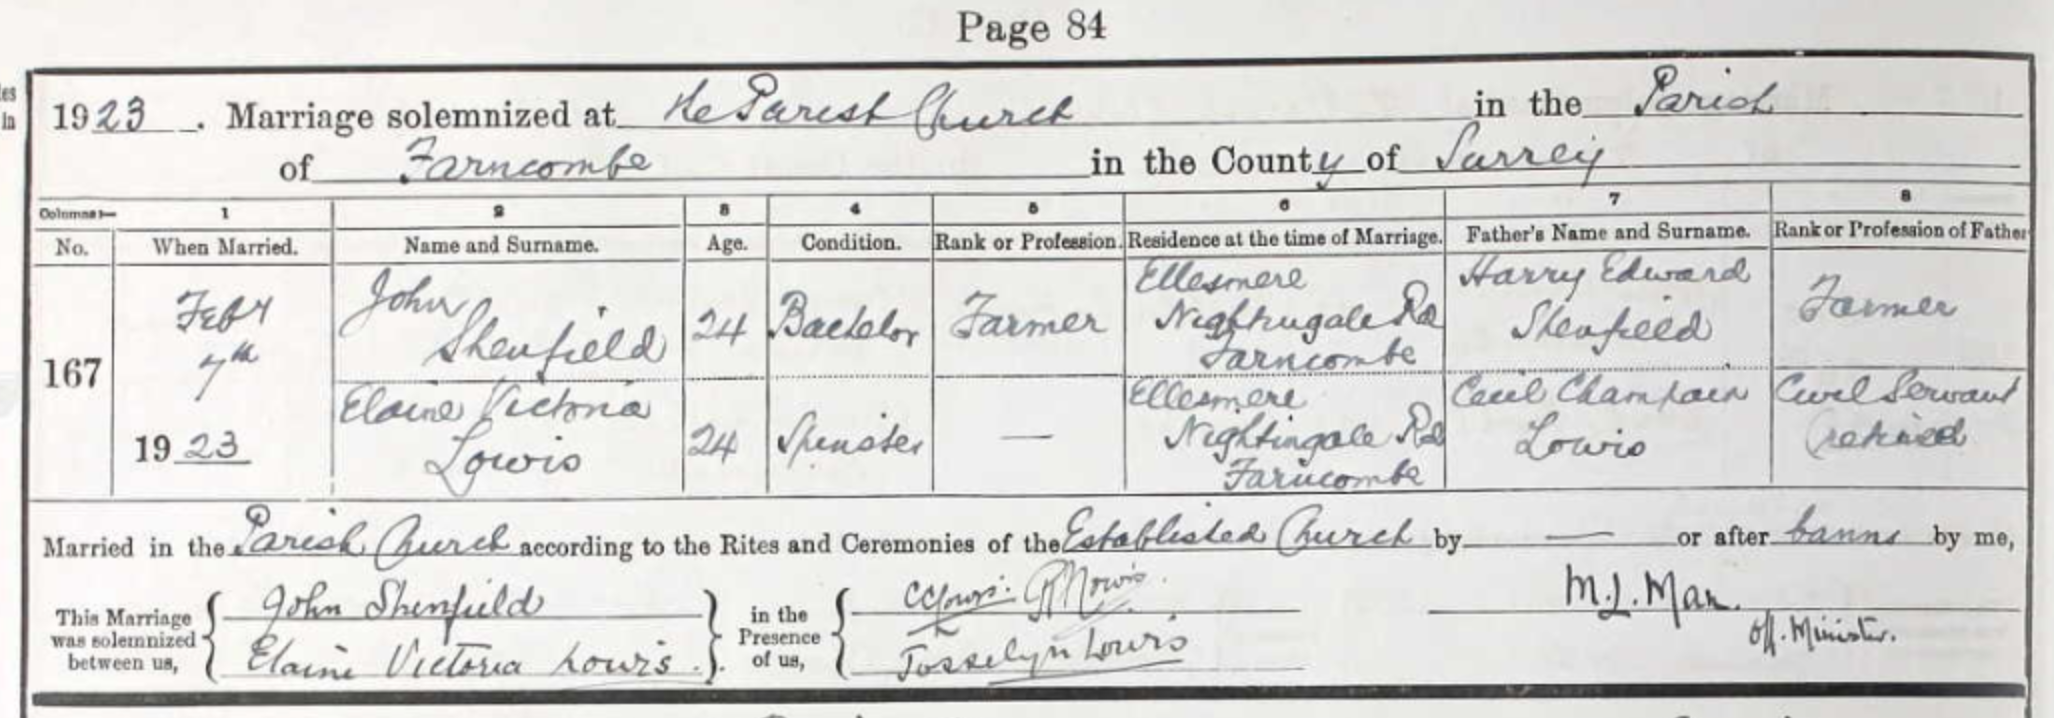 Page 84
1923. Marriage solemnized at the Parish Church in the Parish
of Farncombe in the County of Surrey
Columns:— 1 2 3 4 5 6 7 8
No. When Married. Name and Surname. Age. Condition. Rank or Profession. Residence at the time of Marriage. Father's Name and Surname. Rank or Profession of Father
167 Feby 7th 1923 John Shenfield 24 Bachelor Farmer Ellesmere Nightingale Rd Farncombe Harry Edward Shenfield Farmer
Elaine Victoria Lowis 24 Spinster — Ellesmere Nightingale Rd Farncombe Cecil Champain Lowis Civil Servant (retired)
Married in the Parish Church according to the Rites and Ceremonies of the Established Church by — or after banns by me,
This Marriage was solemnized between us, John Shenfield Elaine Victoria Lowis. in the Presence of us, CC Lowis. Lowis. Josselyn Lowis M.L. Man. Off. Minister.